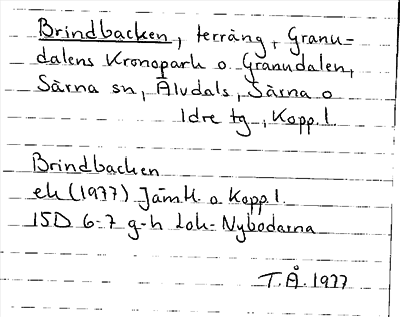 Brindbacken, terräng, Granu-
dalens Kronopark o Granudalen,
Särna sn, Älvdals, Särna o
Idre tg, Kopp.l.
Brindbacken
ek (1977) Jämtl. o Kopp.l.
15D 6-7 g-h Lok- Nybodarna
T.Å. 1977